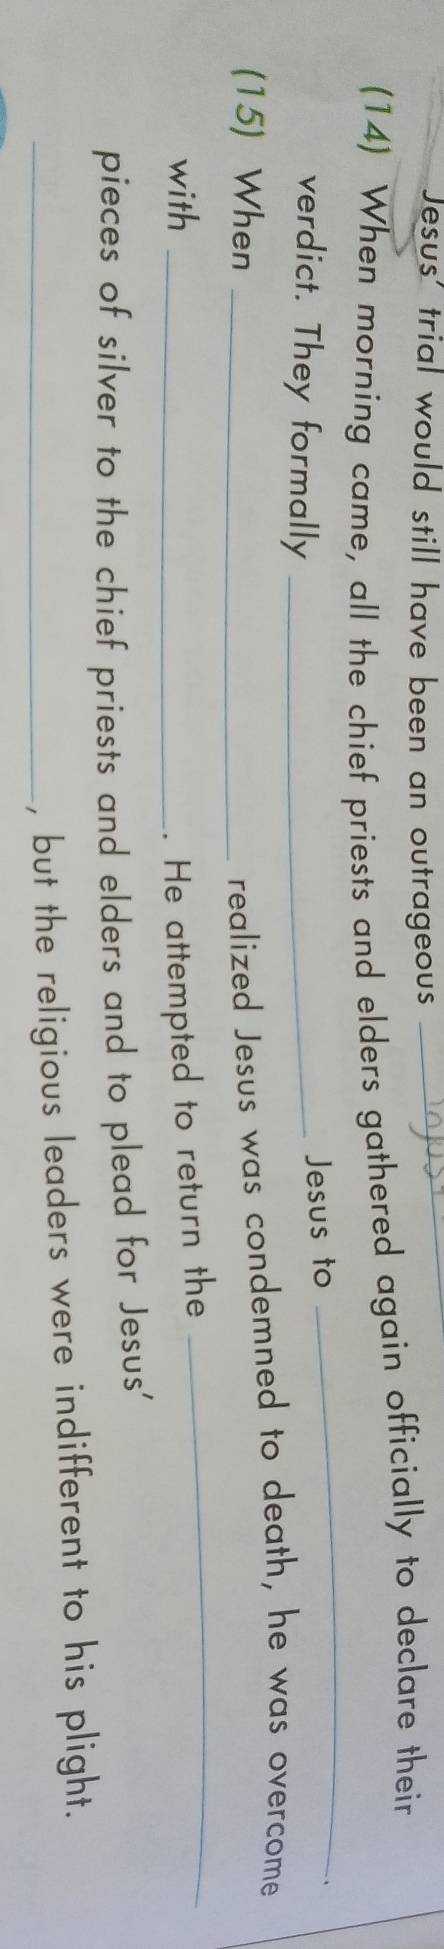 Jesus' trial would still have been an outrageous
(14) When morning came, all the chief priests and elders gathered again officially to declare their
verdict. They formally ____ Jesus to ____.
(15) When ____ realized Jesus was condemned to death, he was overcome
with ____. He attempted to return the ____
pieces of silver to the chief priests and elders and to plead for Jesus'
____, but the religious leaders were indifferent to his plight.